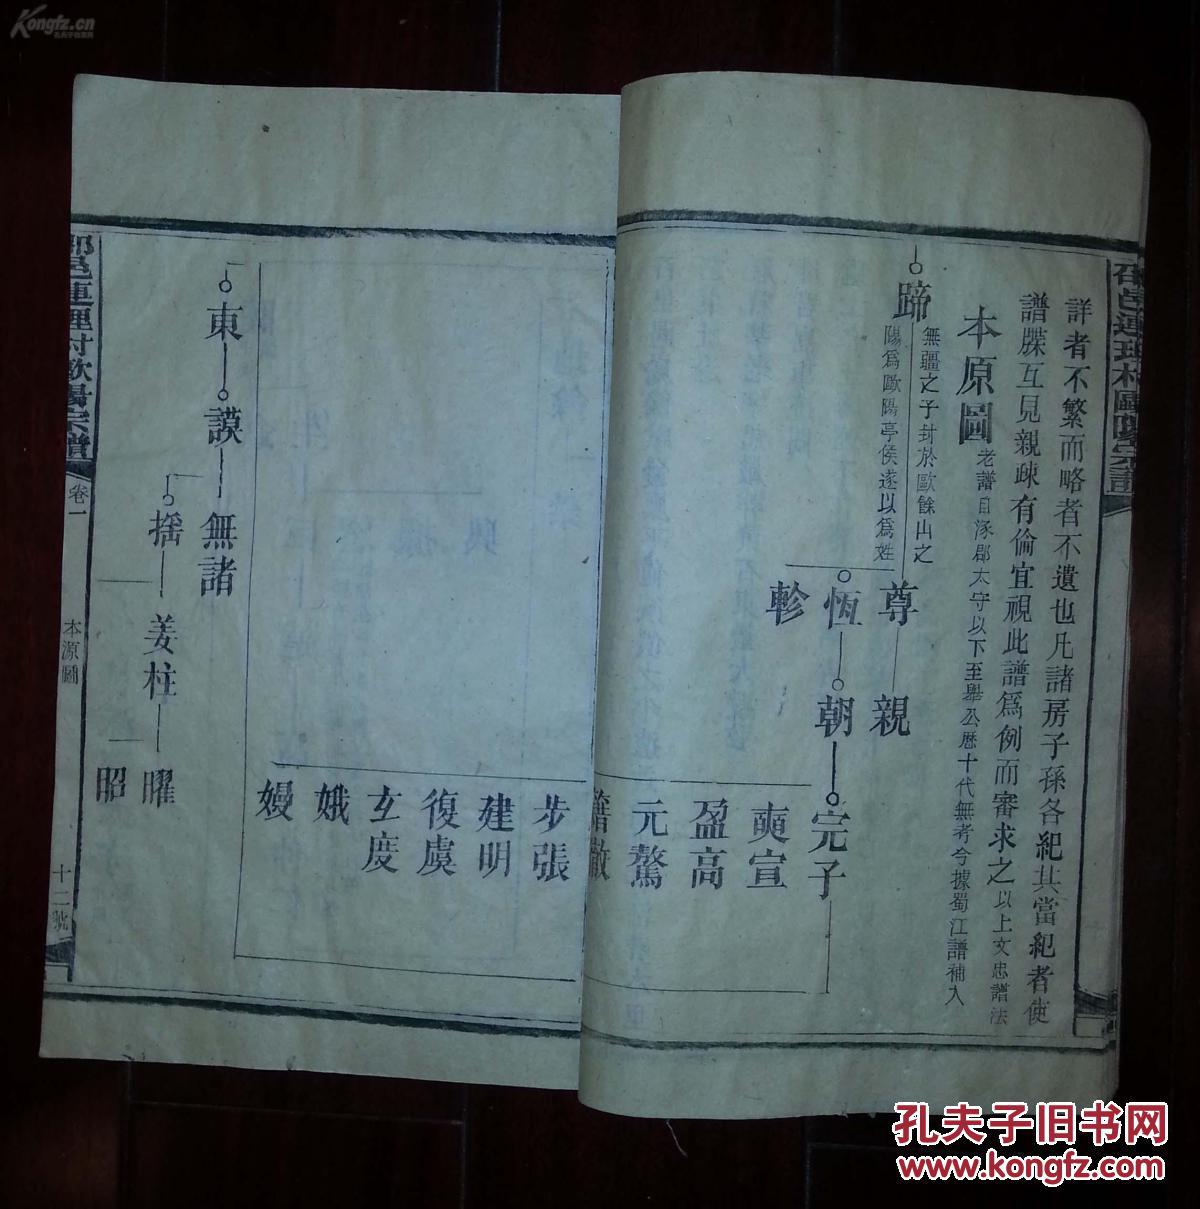 Kongfz.cn
孔夫子旧书网
詳者不繁而略者不遺也凡諸房子孫各紀其當紀者使
譜牒互見親疎有倫宜視此譜爲例而審求之以上文忠譜法
本原圖老譜自涿郡太守以下至舉公歷十代無考今據蜀江譜補入
蹄
無疆之子封於歐餘山之
陽爲歐陽亭侯遂以爲姓
尊
親
恆
朝
完子
軫
奭宣
盈高
元鰲
步張
建明
復虞
玄度
娥
嫚
東
謨
無諸
姜柱
曜
昭
卷一
本源圖
十二號
孔夫子旧书网
www.kongfz.com